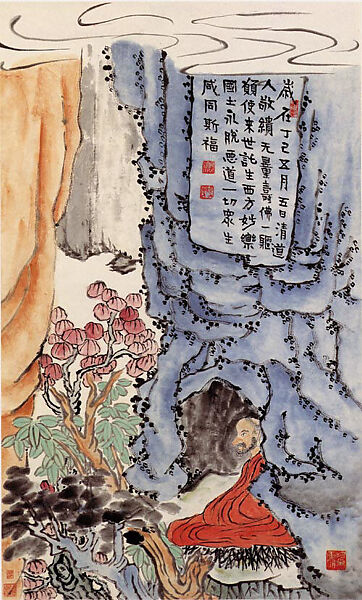 歲在丁己五月五日清道
人敬繢无量壽佛一軀
願使來世託生西方妙樂
國土永脫惡道一切眾生
咸同斯福